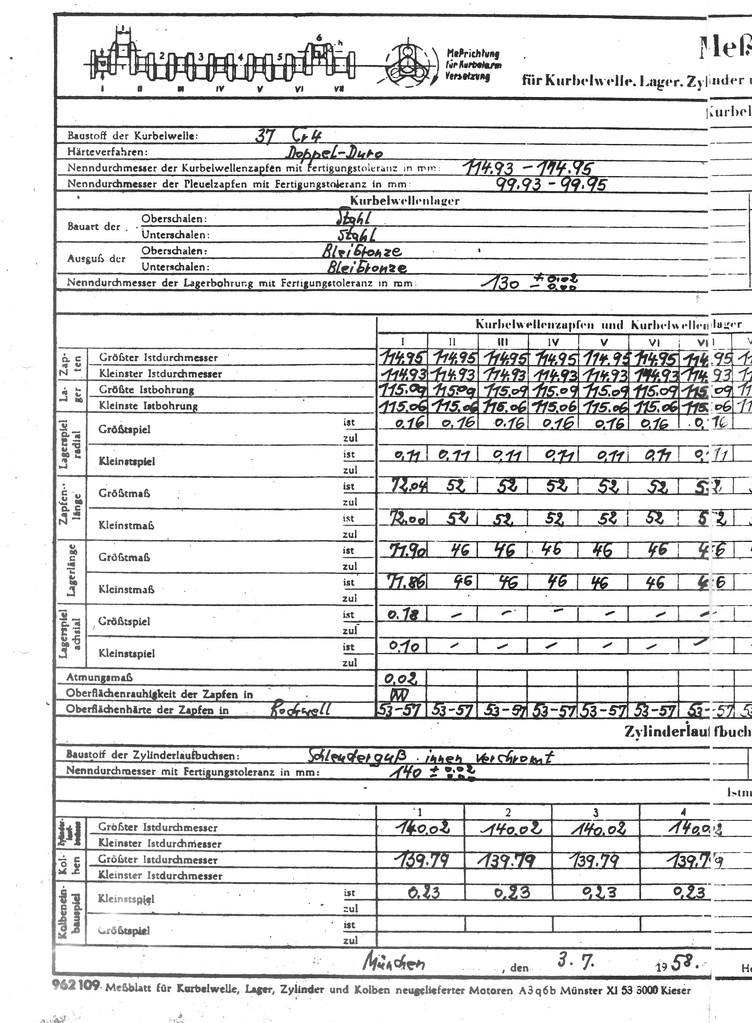 2 3 4 5 6 h
I II III IV V VI VII
Meßrichtung
für Kurbelarm
Versetzung
Meß
für Kurbelwelle, Lager, Zylinder u
Kurbel
Baustoff der Kurbelwelle: 37 Cr4
Härteverfahren: Doppel-Duro
Nenndurchmesser der Kurbelwellenzapfen mit Fertigungstoleranz in mm: 114.93 – 114.95
Nenndurchmesser der Pleuelzapfen mit Fertigungstoleranz in mm: 99.93 – 99.95
Kurbelwellenlager
Bauart der Oberschalen: Stahl
Unterschalen: Stahl
Ausguß der Oberschalen: Bleibronze
Unterschalen: Bleibronze
Nenndurchmesser der Lagerbohrung mit Fertigungstoleranz in mm: 130 + 0.02 – 0.00
Kurbelwellenzapfen und Kurbelwellenlager
I II III IV V VI VII
Zapfen Größter Istdurchmesser 114.95 114.95 114.95 114.95 114.95 114.95 114.95
Kleinster Istdurchmesser 114.93 114.93 114.93 114.93 114.93 114.93 114.93
Lager Größte Istbohrung 115.09 115.09 115.09 115.09 115.09 115.09 115.09
Kleinste Istbohrung 115.06 115.06 115.06 115.06 115.06 115.06 115.06
Lagerspiel radial Größtspiel ist 0.16 0.16 0.16 0.16 0.16 0.16 0.16
zul
Kleinstspiel ist 0,11 0,11 0,11 0,11 0,11 0,11 0,11
zul
Zapfenlänge Größtmaß ist 72.04 52 52 52 52 52 52
zul
Kleinstmaß ist 72.00 52 52 52 52 52 52
zul
Lagerlänge Größtmaß ist 71.90 46 46 46 46 46 46
zul
Kleinstmaß ist 71.86 46 46 46 46 46 46
zul
Lagerspiel achsial Größtspiel ist 0.18 – – – – – –
zul
Kleinstspiel ist 0.10 – – – – – –
zul
Atmungsmaß 0,02
Oberflächenrauhigkeit der Zapfen in
Oberflächenhärte der Zapfen in Rockwell 53-57 53-57 53-57 53-57 53-57 53-57 53-57
Zylinderlaufbuch
Baustoff der Zylinderlaufbuchsen: Schleuderguß innen verchromt
Nenndurchmesser mit Fertigungstoleranz in mm: 140 + 0.02 – 0.00
Istm
1 2 3 4
Größter Istdurchmesser 140.02 140.02 140.02 140.02
Kleinster Istdurchmesser
Kolben Größter Istdurchmesser 139.79 139.79 139.79 139.79
Kleinster Istdurchmesser
Kolbeneinbauspiel Kleinstspiel ist 0.23 0,23 0,23 0,23
zul
Größtspiel ist
zul
München, den 3. 7. 1958. He
962109 Meßblatt für Kurbelwelle, Lager, Zylinder und Kolben neugelieferter Motoren A3q6b Münster XI 53 3000 Kieser